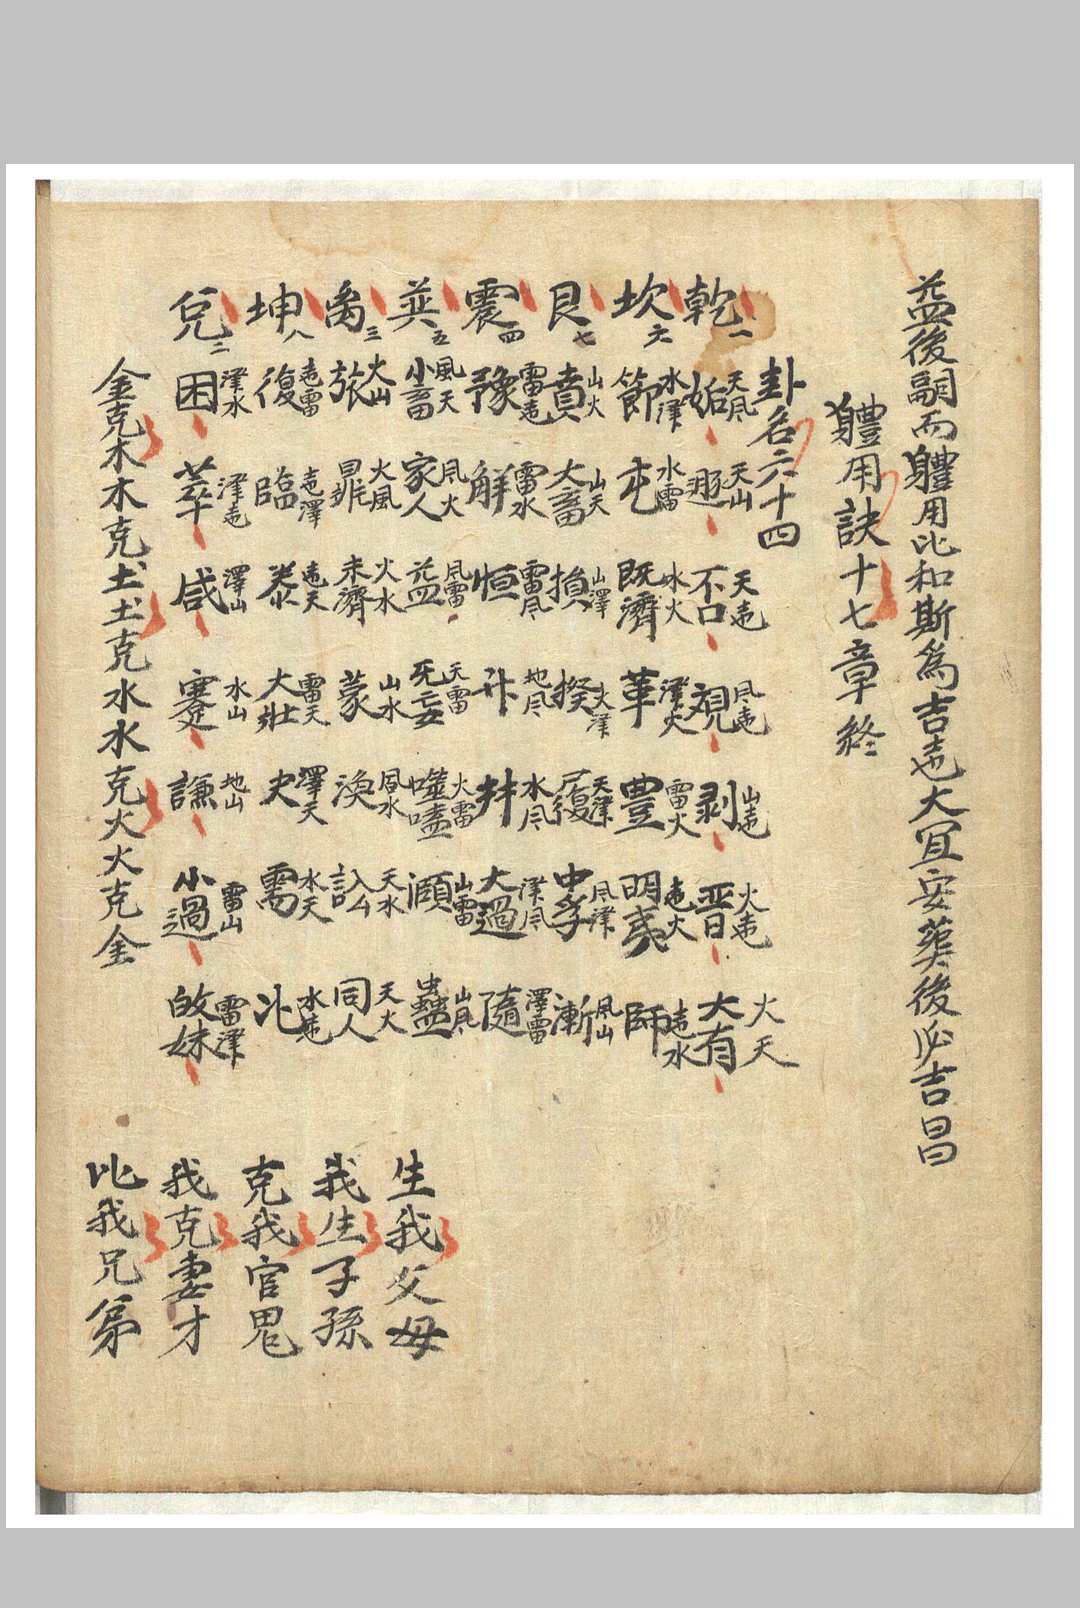 益後嗣而軆用比和斯為吉也大宜安葬後必吉昌
軆用訣十七章終
卦名六十四
乾一 天風姤 天山遯 天地否 風地觀 山地剥 火地晋 火天大有
坎六 水澤節 水雷屯 水火既濟 澤火革 雷火豊 地火明夷 地水師
艮七 山火賁 山天大畜 山澤損 火澤揆 天澤履 風澤中孚 風山漸
震四 雷地豫 雷水解 雷風恒 地風升 水風井 澤風大過 澤雷隨
巽五 風天小畜 風火家人 風雷益 天雷无妄 火雷噬嗑 山雷頤 山風蠱
离三 火山旅 火風鼎 火水未濟 山水蒙 風水渙 天水訟 天火同人
坤八 地雷復 地澤臨 地天泰 雷天大壯 澤天夬 水天需 水地比
兑二 澤水困 澤地萃 澤山咸 水山蹇 地山謙 雷山小過 雷澤歸妹
金克木木克土土克水水克火火克金
生我父母
我生子孫
克我官鬼
我克妻才
比我兄弟